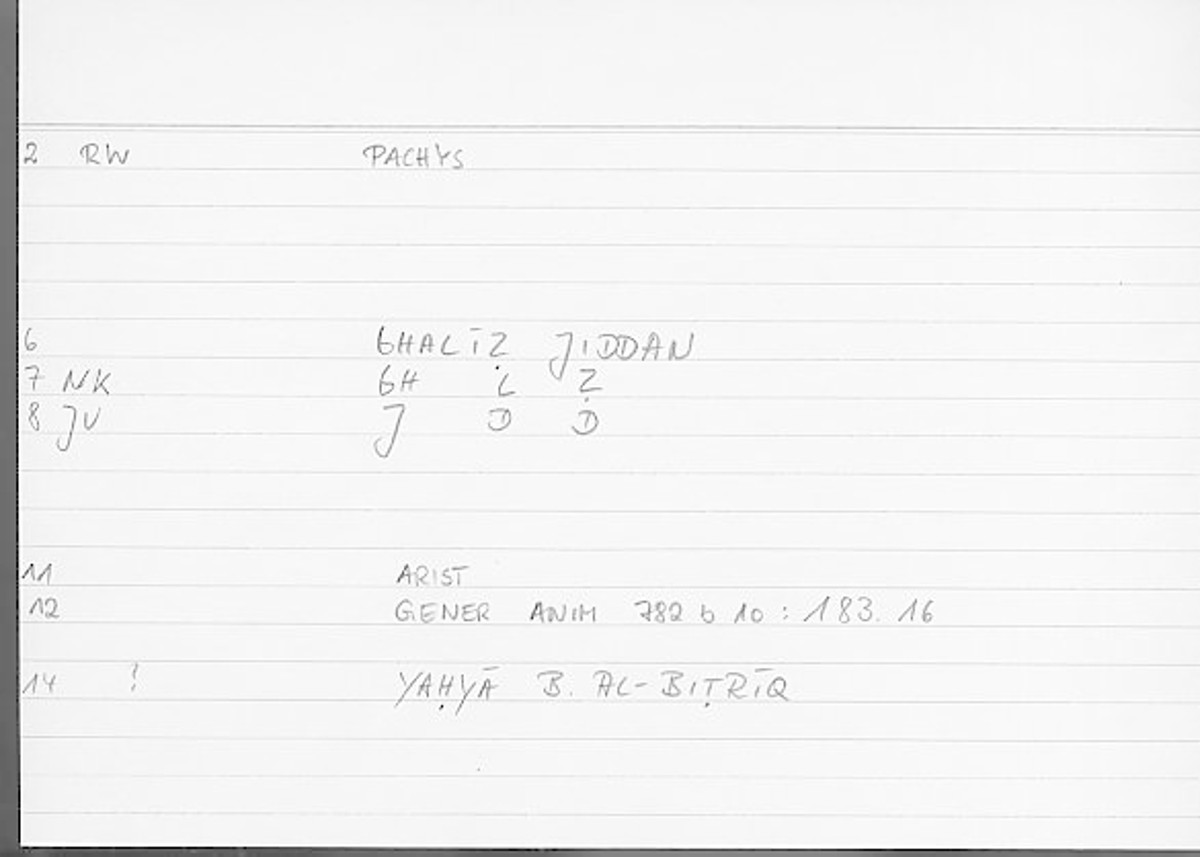 2 RW PACHYS
6 GHALĪẒ JIDDAN
7 NK GH L Ẓ
8 JV J D D
11 ARIST
12 GENER ANIM 782 b 10 : 183. 16
14 ! YAḤYĀ B. AL-BIṬRĪQ